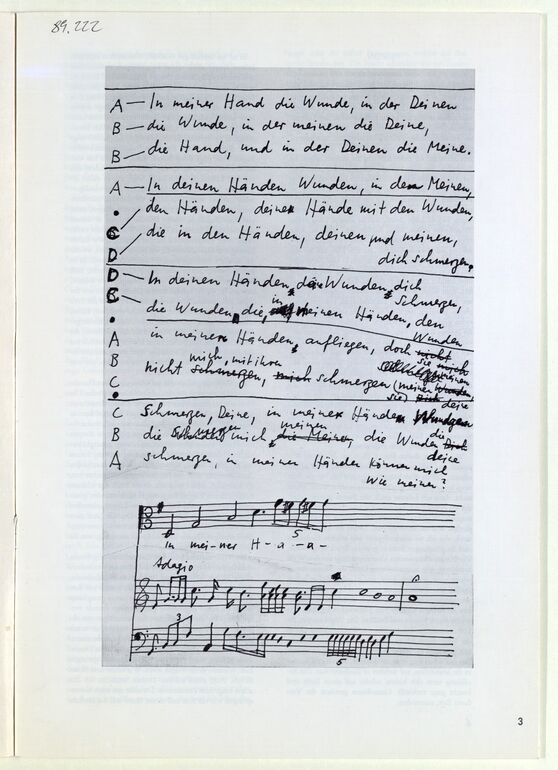 89.222
A — In meiner Hand die Wunde, in der Deinen
B — die Wunde, in der meinen die Deine,
B — die Hand, und in der Deinen die Meine.
A — In deinen Händen Wunden, in den Meinen,
den Händen, deine Hände mit den Wunden,
C
D die in den Händen, deinen und meinen,
dich schmerzen.
D — In deinen Händen, Wunden, dich
C Schmerzen,
die Wunden, die, in meinen Händen, den
Wunden
A in meinen Händen, aufliegen, doch nicht
sie mich
B mich, mit ihren
nicht schmerzen, mich schmerzen (meinen Wunden,
C sie) Dich deine
C Schmerzen, Deine, in meinen Händen Wunden
B die schmerzen mich, die Meinen, die Wunden
meinen die
deine
A schmerzen, in meinen Händen können mich
Wie meinen?
5
In mei-ner H-a-a-
Adagio
3
5
3